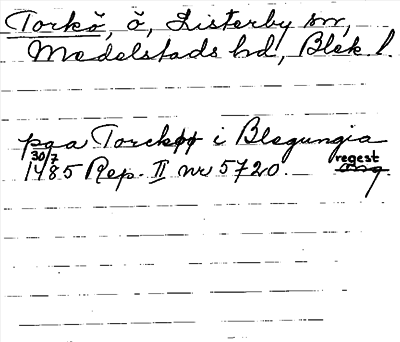 Torkö, ö, Listerby sn,
Medelstads hd, Blek. l.
pga Torckøø i Blegungia
30/7
1485 Rep. II nr 5720. regest